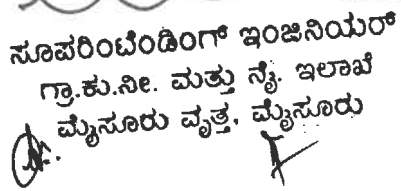 ಸೂಪರಿಂಟೆಂಡಿಂಗ್ ಇಂಜಿನಿಯರ್
ಗ್ರಾ.ಕು.ನೀ. ಮತ್ತು ನೈ. ಇಲಾಖೆ
ಮೈಸೂರು ವೃತ್ತ, ಮೈಸೂರು